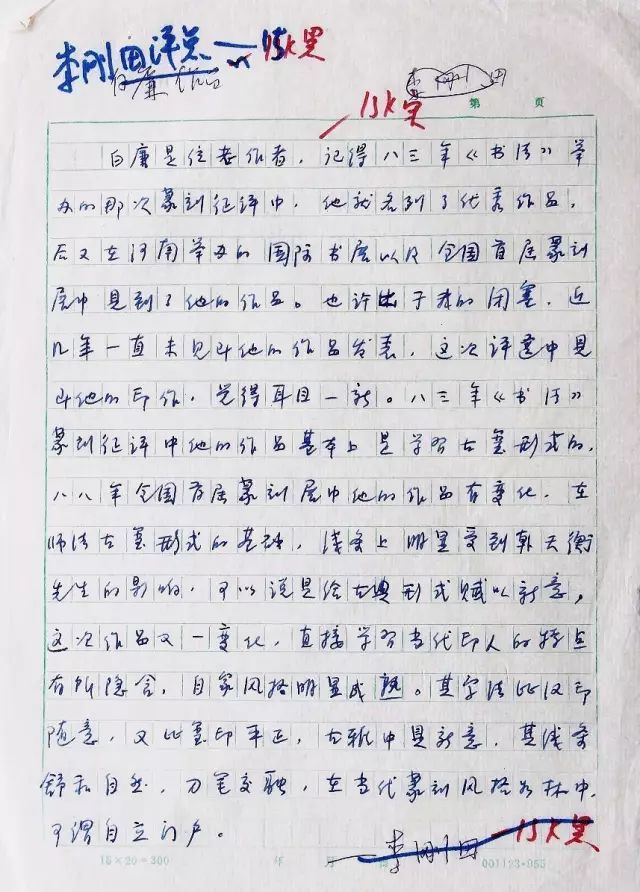 李刚田评点—15K黑
李刚田
15K宋
第 页
白廉是位老作者，记得八三年《书法》举
办的那次篆刻征评中，他就名列了优秀作品，
后又在河南举办的国际书展以及全国首届篆刻
展中见到了他的作品。也许出于我的闭塞，近
几年一直未见到他的作品发表，这次评选中见
到他的印作，觉得耳目一新。八三年《书法》
篆刻征评中他的作品基本上是学习古玺形式的，
八八年全国首届篆刻展中他的作品有变化，在
师法古玺形式的基础，线条上明显受到韩天衡
先生的影响，可以说是给古典形式赋以新意。
这次作品又一变化，直接学习当代印人的特点
有所隐含，自家风格明显成熟。其字法比汉印
随意，又比玺印平正，古雅中具新意，其线条
舒和自然，刀笔交融，在当代篆刻风格如林中，
可谓自立门户。
—李刚田—15K黑
15×20=300
年 月
001123·855